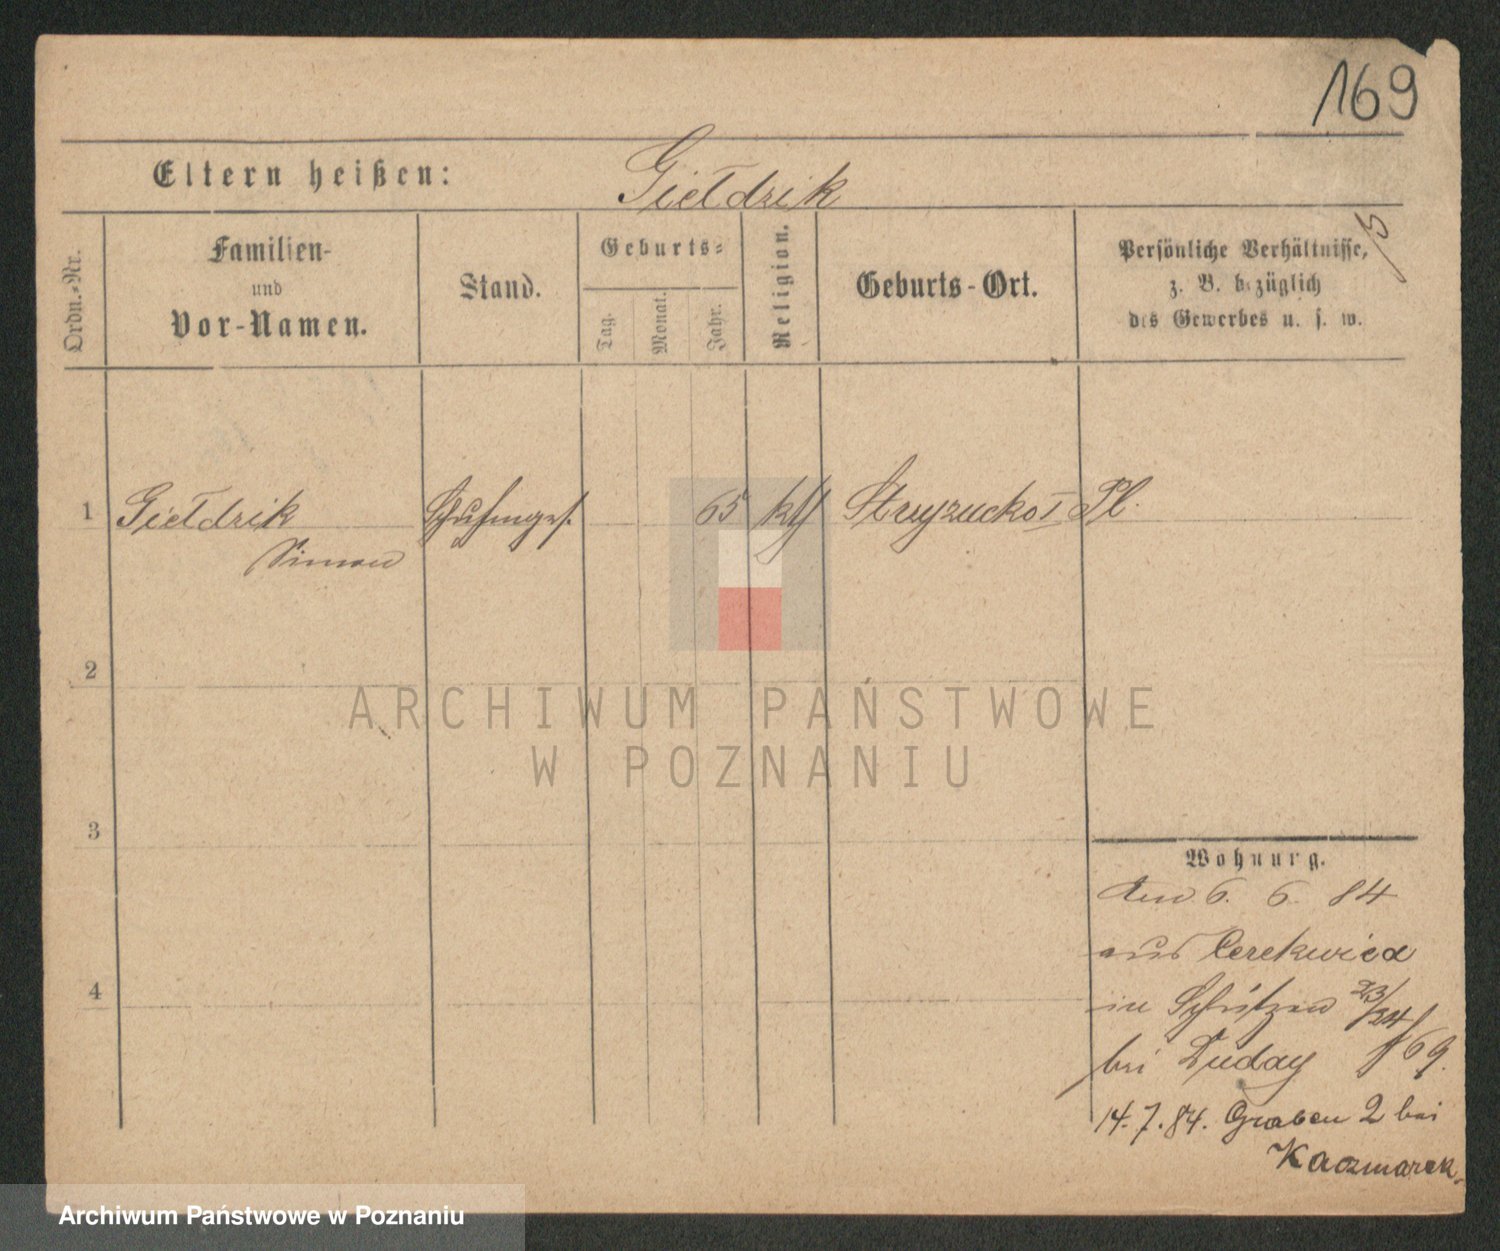 169
Eltern heißen: Giełdzik
5
Ordn.-Nr.
Familien-
und
Vor-Namen.
Stand.
Geburts-
Tag.
Monat.
Jahr.
Religion.
Geburts-Ort.
Persönliche Verhältnisse,
z. B. bezüglich
des Gewerbes u. s. w.
1 Giełdzik 65 kth Pl.
Simon
2
ARCHIWUM PAŃSTWOWE
W POZNANIU
3
4
Wohnung.
Am 6. 6. 84
aus Cerekwica
in Schützen 23/24
bei Duday /69.
14. 7. 84. Graben 2 bei
Kaczmarek.
Archiwum Państwowe w Poznaniu